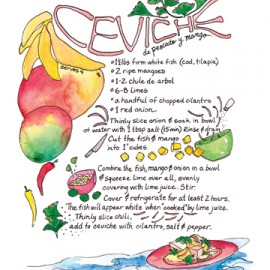 CEVICHE
de pescado y mango
serves 4
• 1½ lbs firm white fish (cod, tilapia)
• 2 ripe mangoes
• 1-2 chile de arbol
• 6-8 limes
• a handful of chopped cilantro
• 1 red onion
Thinly slice onion & soak in bowl
of water with 1 tbsp salt (15 min) Rinse & drain
Cut the fish & mango
into 1" cubes
Combine the fish, mango & onion in a bowl
& squeeze lime over all, evenly
covering with lime juice. Stir.
Cover & refrigerate for at least 2 hours.
The fish will appear white when "cooked" by lime juice.
Thinly slice chili,
add to ceviche with cilantro, salt & pepper.